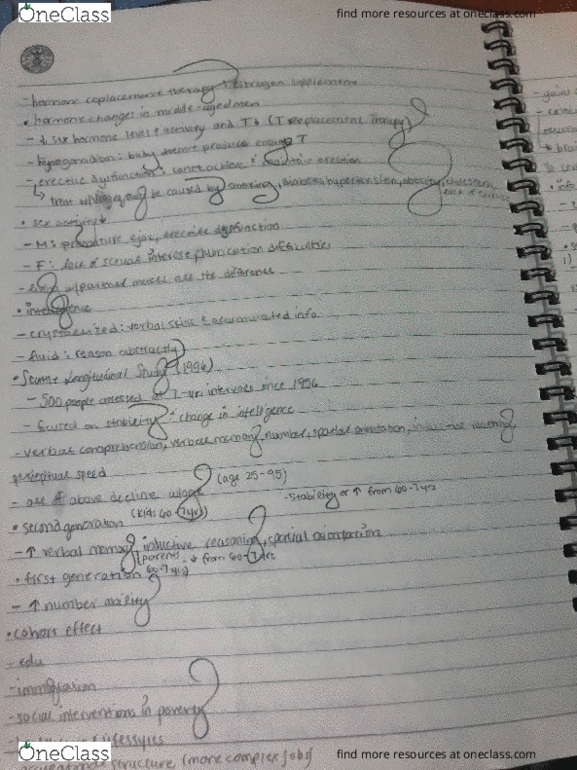 OneClass
find more resources at oneclass.com
- hormone replacement therapy : estrogen supplement
• hormone changes in middle-aged men
- ↓ sex hormone level & activity and T↓ (T Replacement Therapy)
- hypogonadism: body doesn't produce enough T
- erectile dysfunction: can't achieve & maintain erection
↳ treat w/ viagra, may be caused by smoking, diabetes, hypertension, obesity, cholesterol,
lack of exercise
• sex activity↓
- M: premature ejac, erectile dysfunction
- F: lack of sexual interest, lubrication difficulties
w/ personal
• intelligence
- crystallized: verbal skills & accumulated info
- fluid: reason abstractly
• Seattle Longitudinal Study (1994)
- 500 people assessed at 7-yr intervals since 1956
- focused on stability & change in intelligence
- verbal comprehension, verbal memory, number, spatial orientation, inductive reasoning,
perceptual speed
- all of above decline w/age (age 25-95)
- stability or ↑ from 60-7yrs
• second generation (kids 60-7yrs)
- ↑ verbal memory, inductive reasoning, spatial orientation
• first generation (parents 60-7yrs)
from 60-7yrs
- ↑ number ability
• cohort effect
- edu
- immigration
- social interventions in poverty
lifestyles
structure (more complex jobs)
OneClass
find more resources at oneclass.com